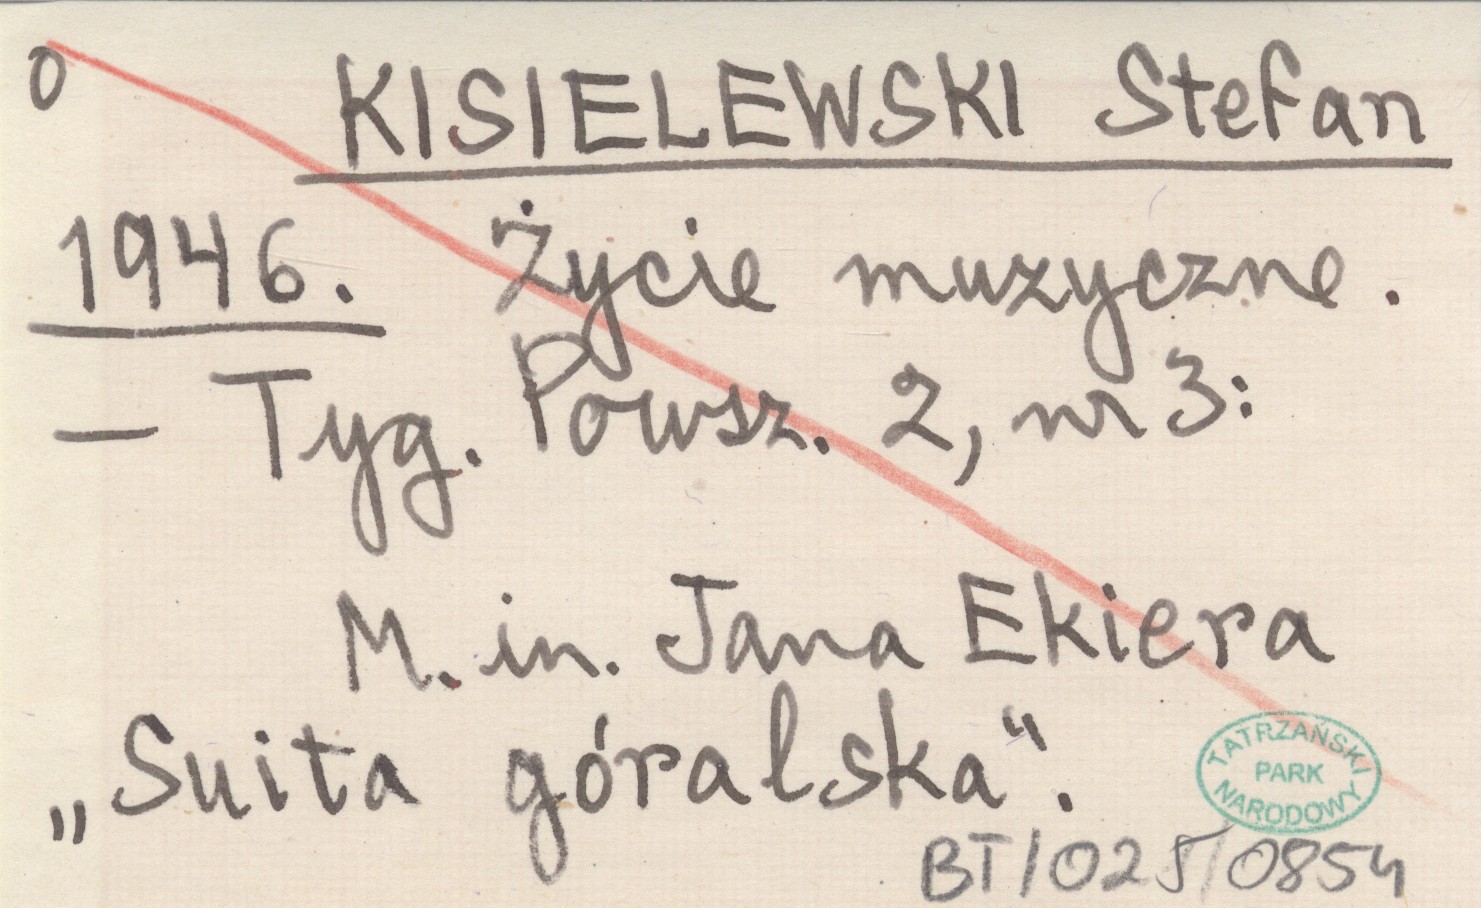 0
KISIELEWSKI Stefan
1946. Życie muzyczne.
— Tyg. Powsz. 2, nr 3:
M. in. Jana Ekiera
„Suita góralska“.
TATRZAŃSKI
PARK
NARODOWY
BT/025/0854